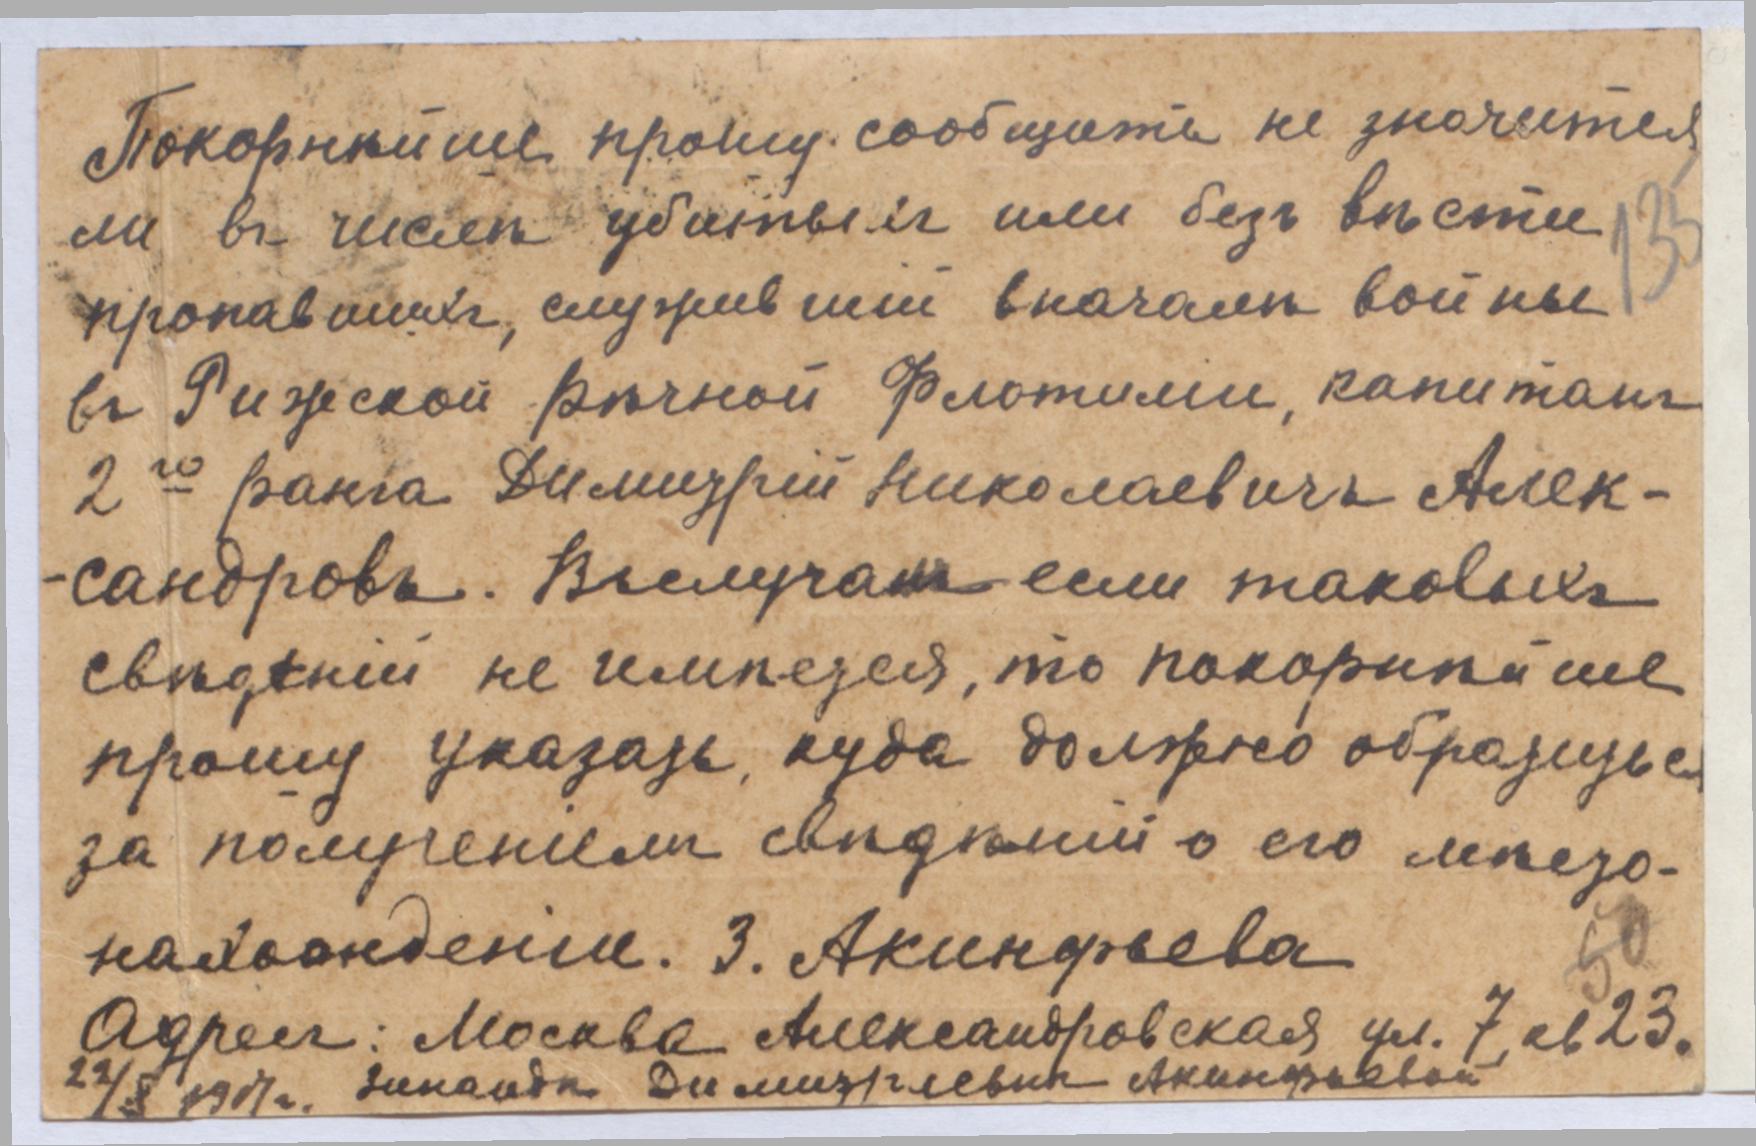 Покорнѣйше прошу сообщить не значится
ли въ числѣ убитыхъ или безъ вѣсти
135
пропавшихъ, служившій вначалѣ войны
въ Рижской Рѣчной Флотиліи, капитанъ
2го ранга Димитрій Николаевичъ Алек-
-сандровъ. Въ случаѣ если таковыхъ
свѣдѣній не имѣется, то покорнѣйше
прошу указать, куда должно обратиться
за полученіемъ свѣдѣній о его мѣсто-
нахожденіи. З. Акинфьева
50
Адресъ: Москва Александровская ул. 7, кв 23.
22/X 1917г. Зинаидѣ Димитріевнѣ Акинфьевой